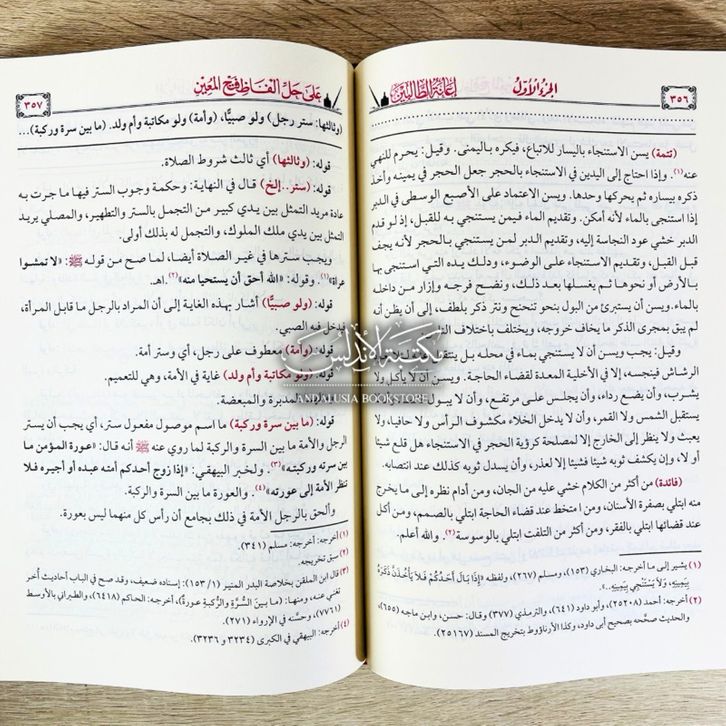 ٣٥٦
إعانة الطالبين
الجزء الأول
(تتمة) يسن الاستنجاء باليسار للاتباع، فيكره باليمنى. وقيل: يحرم للنهي
عنه(١). وإذا احتاج إلى اليدين في الاستنجاء بالحجر جعل الحجر في يمينه وأخذ
ذكره بيساره ثم يحركها وحدها. ويسن الاعتماد على الأصبع الوسطى في الدبر
إذا استنجى بالماء لأنه أمكن. وتقديم الماء فيمن يستنجي به للقبل، إذ لو قدم
الدبر خشي عود النجاسة إليه، وتقديم الدبر لمن يستنجي بالحجر لأنه يجف
قبل القبل، وتقديم الاستنجاء على الوضوء، ودلك يده التي استنجى بها
بالأرض أو نحوها ثم يغسلها بعد ذلك، ونضح فرجه وإزار من داخله
بالماء. ويسن أن يستبرئ من البول بنحو تنحنح ونتر ذكر بلطف، إلى أن يظن أنه
لم يبق بمجرى الذكر ما يخاف خروجه، ويختلف باختلاف
وقيل: يجب ويسن أن لا يستنجي بماء في محله بل ينتقل
الرشاش فينجسه، إلا في الأخلية المعدة لقضاء الحاجة. ويسن أن لا يأكل ولا
يشرب، وأن يضع رداء، وأن يجلس على مرتفع، وأن لا يبول
يستقبل الشمس ولا القمر، وأن لا يدخل الخلاء مكشوف الرأس ولا حافيا، ولا
يعبث ولا ينظر إلى الخارج إلا لمصلحة كرؤية الحجر في الاستنجاء هل قلع شيئا
أو لا، وإن يكشف ثوبه شيئا فشيئا إلا لعذر، وأن يسدل ثوبه كذلك عند انتصابه.
(فائدة) من أكثر من الكلام خشي عليه من الجان، ومن أدام نظره إلى ما يخرج
منه ابتلي بصفرة الأسنان، ومن امتخط عند قضاء الحاجة ابتلي بالصمم، ومن أكل
عند قضائها ابتلي بالفقر، ومن أكثر من التلفت ابتلي بالوسوسة(٢). والله أعلم.
(١) يشير إلى ما أخرجه: البخاري (١٥٣)، ومسلم (٢٦٧)، ولفظه «إِذَا بَالَ أَحَدُكُمْ فَلَا يَأْخُذَنَّ ذَكَرَهُ
بِيَمِينِهِ، وَلَا يَسْتَنْجِي بِيَمِينِهِ..».
(٢) أخرجه: أحمد (٢٥٢٠٨)، وأبو داود (٦٤١)، والترمذي (٣٧٧) وقال: حسن، وابن ماجه (٦٥٥)،
والحديث صححه بصحيح أبي داود، وكذا الأرناؤوط بتخريج المسند (٢٥١٦٧).
على حل ألفاظ فتح المعين
٣٥٧
(وثالثها: ستر رجل) ولو صبيًّا، (وأمة) ولو مكاتبة وأم ولد. (ما بين سرة وركبة)...
قوله: (وثالثها) أي ثالث شروط الصلاة.
قوله: (ستر..إلخ) قال في النهاية: وحكمة وجوب الستر فيها ما جرت به
عادة مريد التمثل بين يدي كبير من التجمل بالستر والتطهير، والمصلي يريد
التمثل بين يدي ملك الملوك، والتجمل له بذلك أولى.
ويجب سترها في غير الصلاة أيضا، لما صح من قوله ﷺ: «لا تمشوا
عراة»(١). وقوله: «الله أحق أن يستحيا منه»(٢). اهـ.
قوله: (ولو صبيًّا) أشار بهذه الغاية إلى أن المراد بالرجل ما قابل المرأة،
فدخل فيه الصبي.
قوله: (وأمة) معطوف على رجل، أي وستر أمة.
قوله: (ولو مكاتبة وأم ولد) غاية في الأمة، وهي للتعميم.
المدبرة والمبعضة.
قوله: (ما بين سرة وركبة) ما اسم موصول مفعول ستر، أي يجب أن يستر
الرجل والأمة ما بين السرة والركبة لما روي عنه ﷺ أنه قال: «عورة المؤمن ما
بين سرته وركبته»(٣). ولخبر البيهقي: «إذا زوج أحدكم أمته عبده أو أجيره فلا
تنظر الأمة إلى عورته»(٤). والعورة ما بين السرة والركبة.
وألحق بالرجل الأمة في ذلك بجامع أن رأس كل منهما ليس بعورة.
(١) أخرجه: أخرجه مسلم (٣٤١)
(٢) سبق تخريجه.
(٣) قال ابن الملقن بخلاصة البدر المنير (١/١٥٣): إسناده ضعيف، وقد صح في الباب أحاديث أُخر
تغني عنه، ومنها: (ما بينَ السُّرَّةِ والرُّكبةِ عورةٌ)، أخرجه: الحاكم (٦٤١٨)، والطبراني بالأوسط
(٧٧٦١)، وحسَّنه في الإرواء (٢٧١).
(٤) أخرجه: البيهقي في الكبرى (٣٢٣٤ و ٣٢٣٦).
مكتبة الأندلس
ANDALUSIA BOOKSTORE